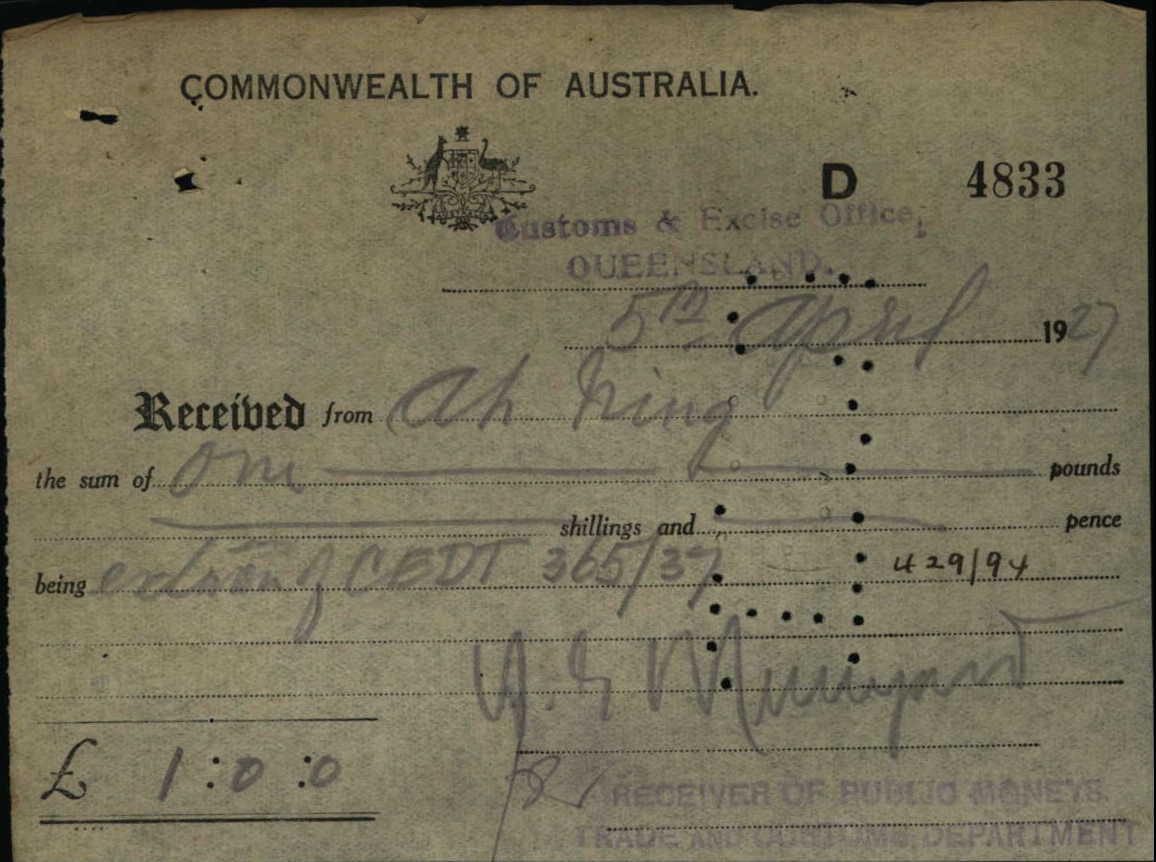 COMMONWEALTH OF AUSTRALIA.
D 4833
Customs & Excise Office,
QUEENSLAND.
5th April 1927
Received from Ah
the sum of One pounds
shillings and pence
being of CEDT 365/37 429/94
£ 1:0:0
RECEIVER OF PUBLIC MONEYS
TRADE AND CUSTOMS DEPARTMENT